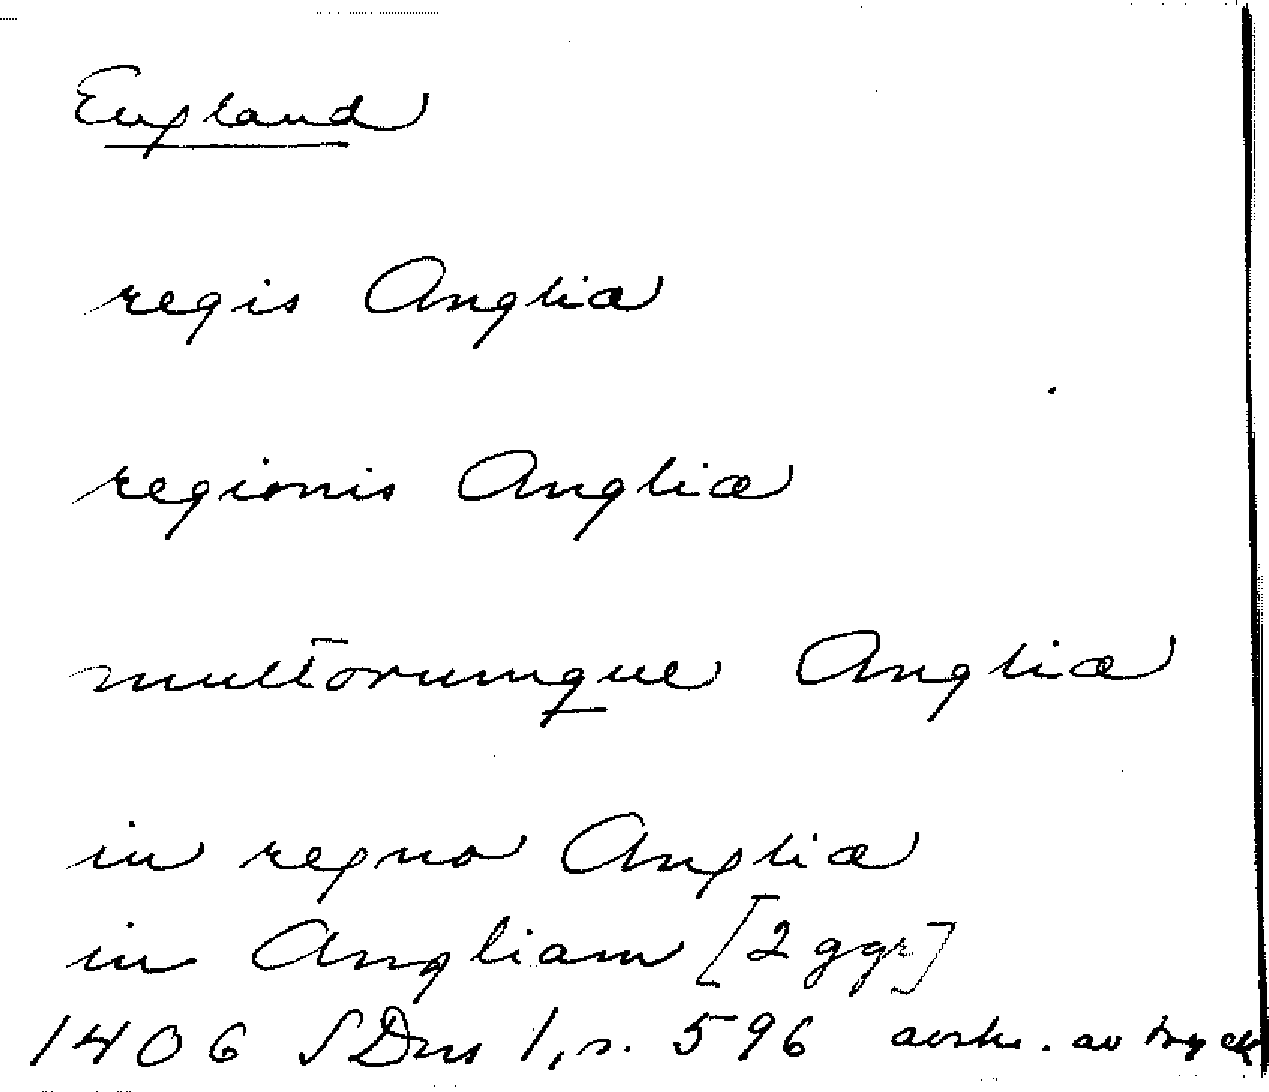 England
regis Angliæ
regionis Angliæ
multorumque Angliæ
in regno Angliæ
in Angliam [2 ggr]
1406 SDns 1, s. 596 avskr. av tryck